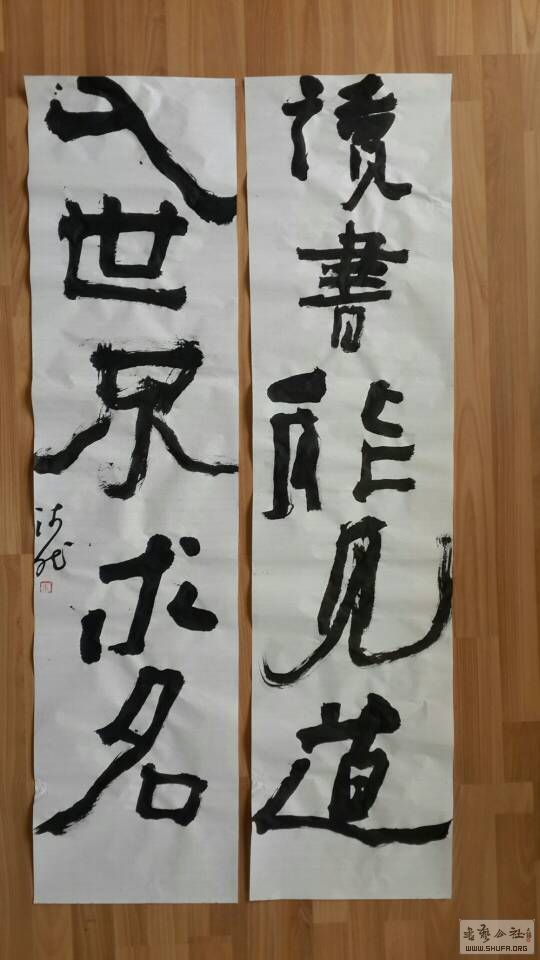 读書能见道
入世不求名
书艺公社
WWW.SHUFA.ORG